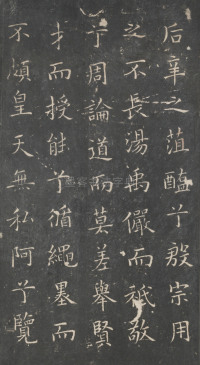 后辛之菹醢兮殷宗用
之不長湯禹儼而祗敬
兮周論道而莫差舉賢
才而授能兮循繩墨而
不頗皇天無私阿兮覽